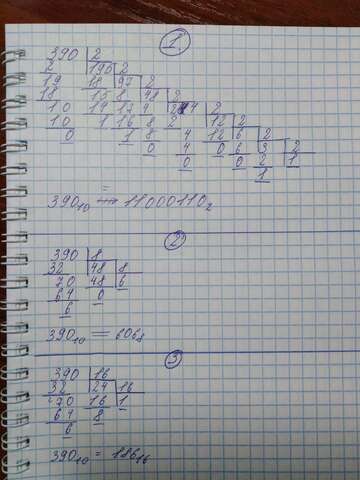 1
390 2
2 195 2
19 18 97 2
18 15 8 48 2
10 14 17 4 24 2
10 1 16 8 2 12 2
0 1 8 4 12 6 2
0 4 0 6 3 2
0 0 2 1
1
390₁₀ = 11000110₂
2
390 8
32 48 8
70 48 6
64 0
6
390₁₀ = 606₈
3
390 16
32 24 16
70 16 1
64 8
6
390₁₀ = 186₁₆